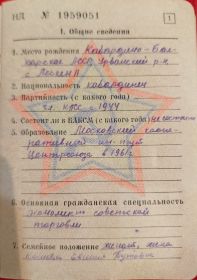 НД № 1959051
1
I. Общие сведения
1. Место рождения Кабардино-Бал-
карская АССР, Урванский р-н
с. Лескен II
2. Национальность кабардинец
3. Партийность (с какого года)
чл. КПСС с 1944
4. Состоит ли в ВЛКСМ (с какого года) не состоит
5. Образование Московский кооп-
еративный ин-тут
Центросоюза в 1961г.
6. Основная гражданская специальность
экономист советской
торговли
7. Семейное положение женат, жена
Евгения